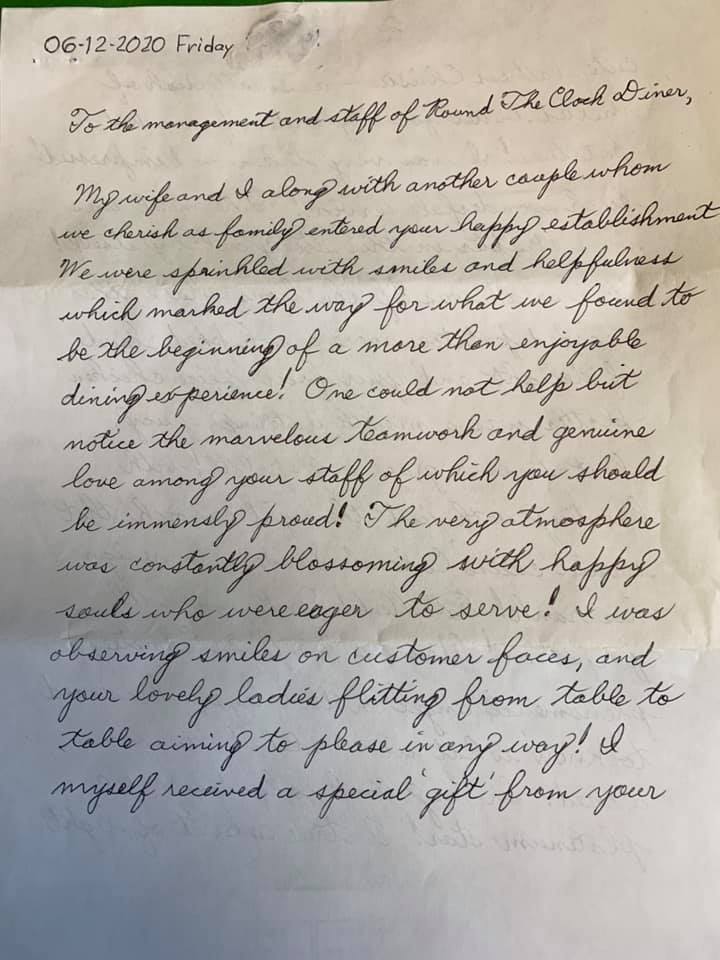 06-12-2020 Friday
To the management and staff of Round The Clock Diner,
My wife and I along with another couple whom
we cherish as family entered your happy establishment
We were sprinkled with smiles and helpfulness
which marked the way for what we found to
be the beginning of a more than enjoyable
dining experience! One could not help but
notice the marvelous teamwork and genuine
love among your staff of which you should
be immensly proud! The very atmosphere
was constantly blossoming with happy
souls who were eager to serve! I was
observing smiles on customer faces, and
your lovely ladies flitting from table to
table aiming to please in any way! I
myself received a special 'gift' from your